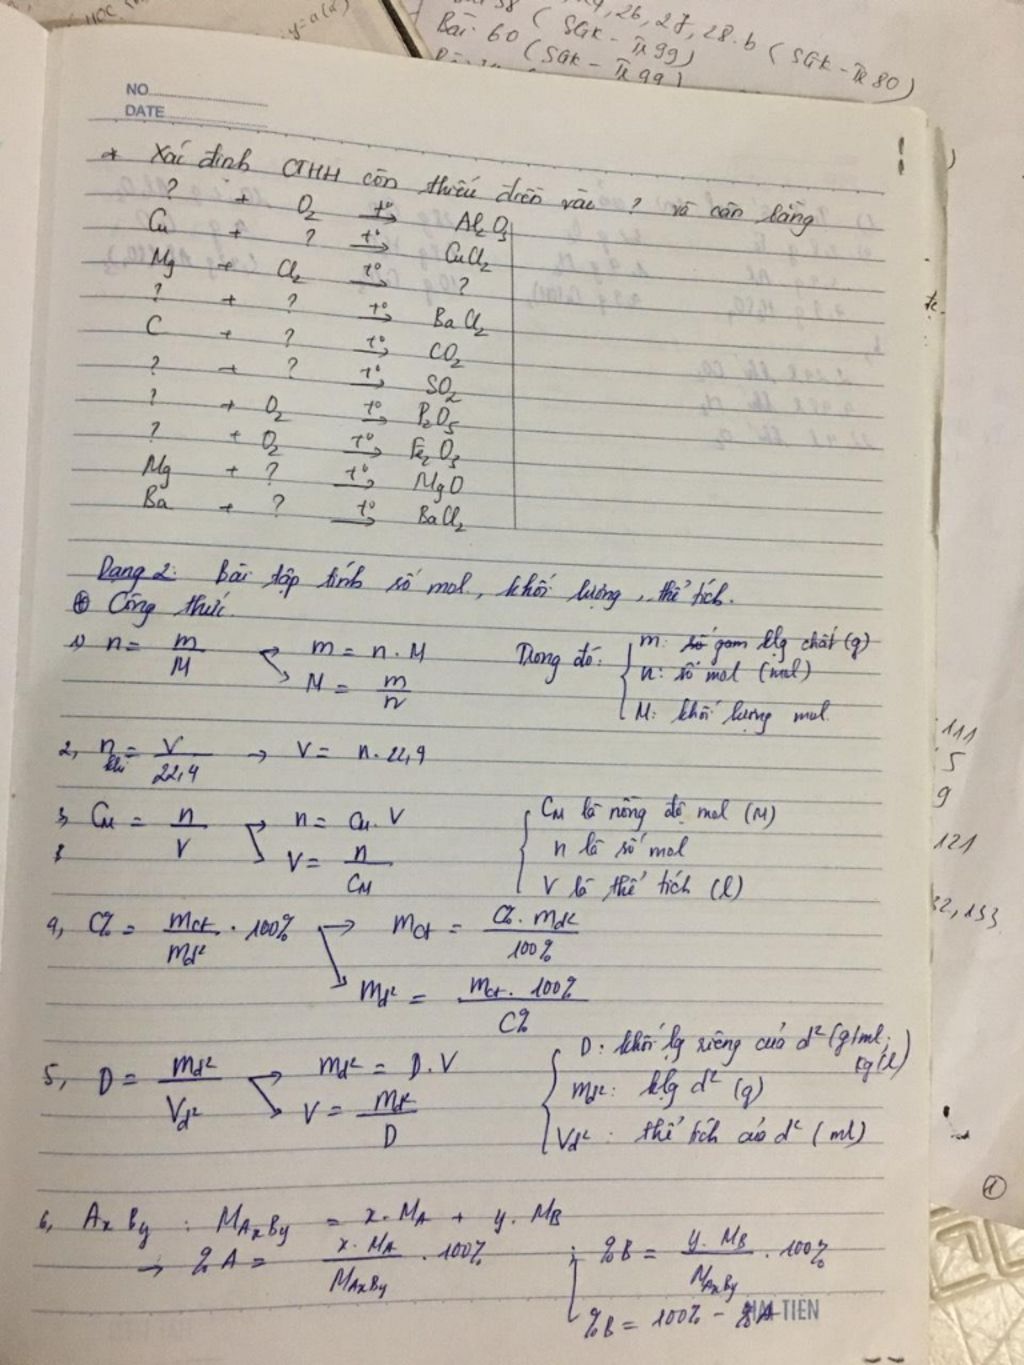 Bài 60 (SGK - Tr 99)
26, 27, 28.b (SGK - Tr 80)
(SGK - Tr 99)
NO
DATE
* Xác định CTHH còn thiếu điền vào ? và cân bằng
? + O₂ →(t°) Al₂O₃
Cu + ? →(t°) CuCl₂
Mg + Cl₂ →(t°) ?
? + ? →(t°) BaCl₂
C + ? →(t°) CO₂
? + ? →(t°) SO₂
? + O₂ →(t°) P₂O₅
? + O₂ →(t°) Fe₂O₃
Mg + ? →(t°) MgO
Ba + ? →(t°) BaCl₂
Dạng 2: Bài tập tính số mol, khối lượng, thể tích.
⊕ Công thức
1) n = m/M → m = n . M
→ M = m/n
Trong đó: m: số gam klg chất (g)
n: số mol (mol)
M: khối lượng mol
2, n khí = V/22,4 → V = n . 22,4
3, CM = n/V → n = CM . V
→ V = n/CM
CM là nồng độ mol (M)
n là số mol
V là thể tích (l)
4, C% = mct/md² . 100% → mct = C% . md²/100%
→ md² = mct . 100%/C%
5, D = md²/Vd² → md² = D . V
→ V = md²/D
D: khối lg riêng của d² (g/ml, kg/l)
md²: klg d² (g)
Vd²: thể tích của d² (ml)
6, AxBy : MAxBy = x . MA + y . MB
→ %A = x . MA/MAxBy . 100% ; %B = y . MB/MAxBy . 100%
%B = 100% - %A
HẢI TIẾN
111
5
9
121
32, 133
1